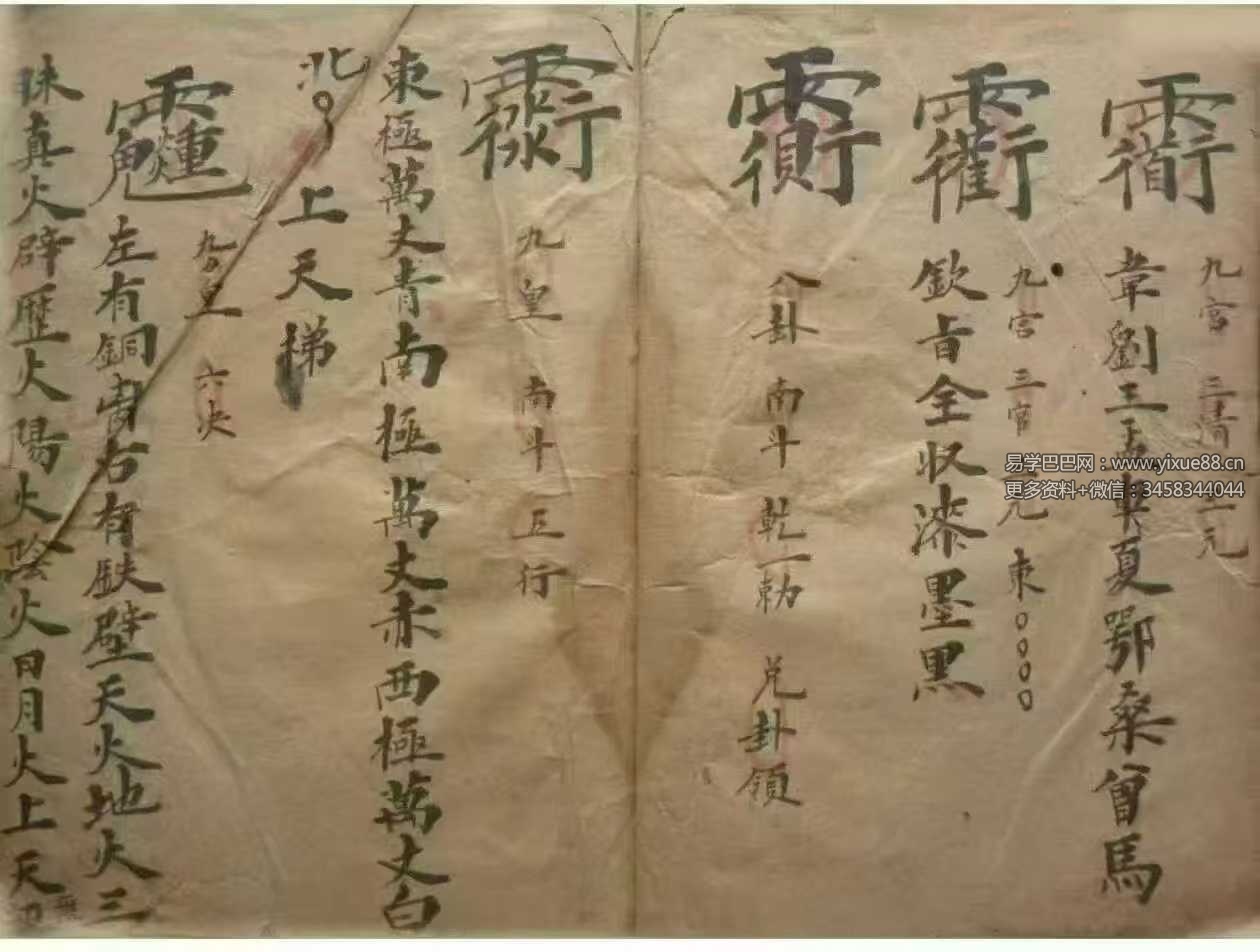 九宮 三清 三元
韋劉王孟車夏鄂桑曾馬
九宮 三官 元 東〇〇〇〇
欽旨全収漆墨黑
八卦 南斗 乾一勅 兌卦領
九皇 南斗 五行
東極萬丈青南極萬丈赤西極萬丈白
北〇
上天梯
九皇 六
左有銅 右有鉄壁天火地火三
昧真火辟歷火陽火陰火日月火上天
易学巴巴网：www.yixue88.cn
更多资料+微信：3458344044